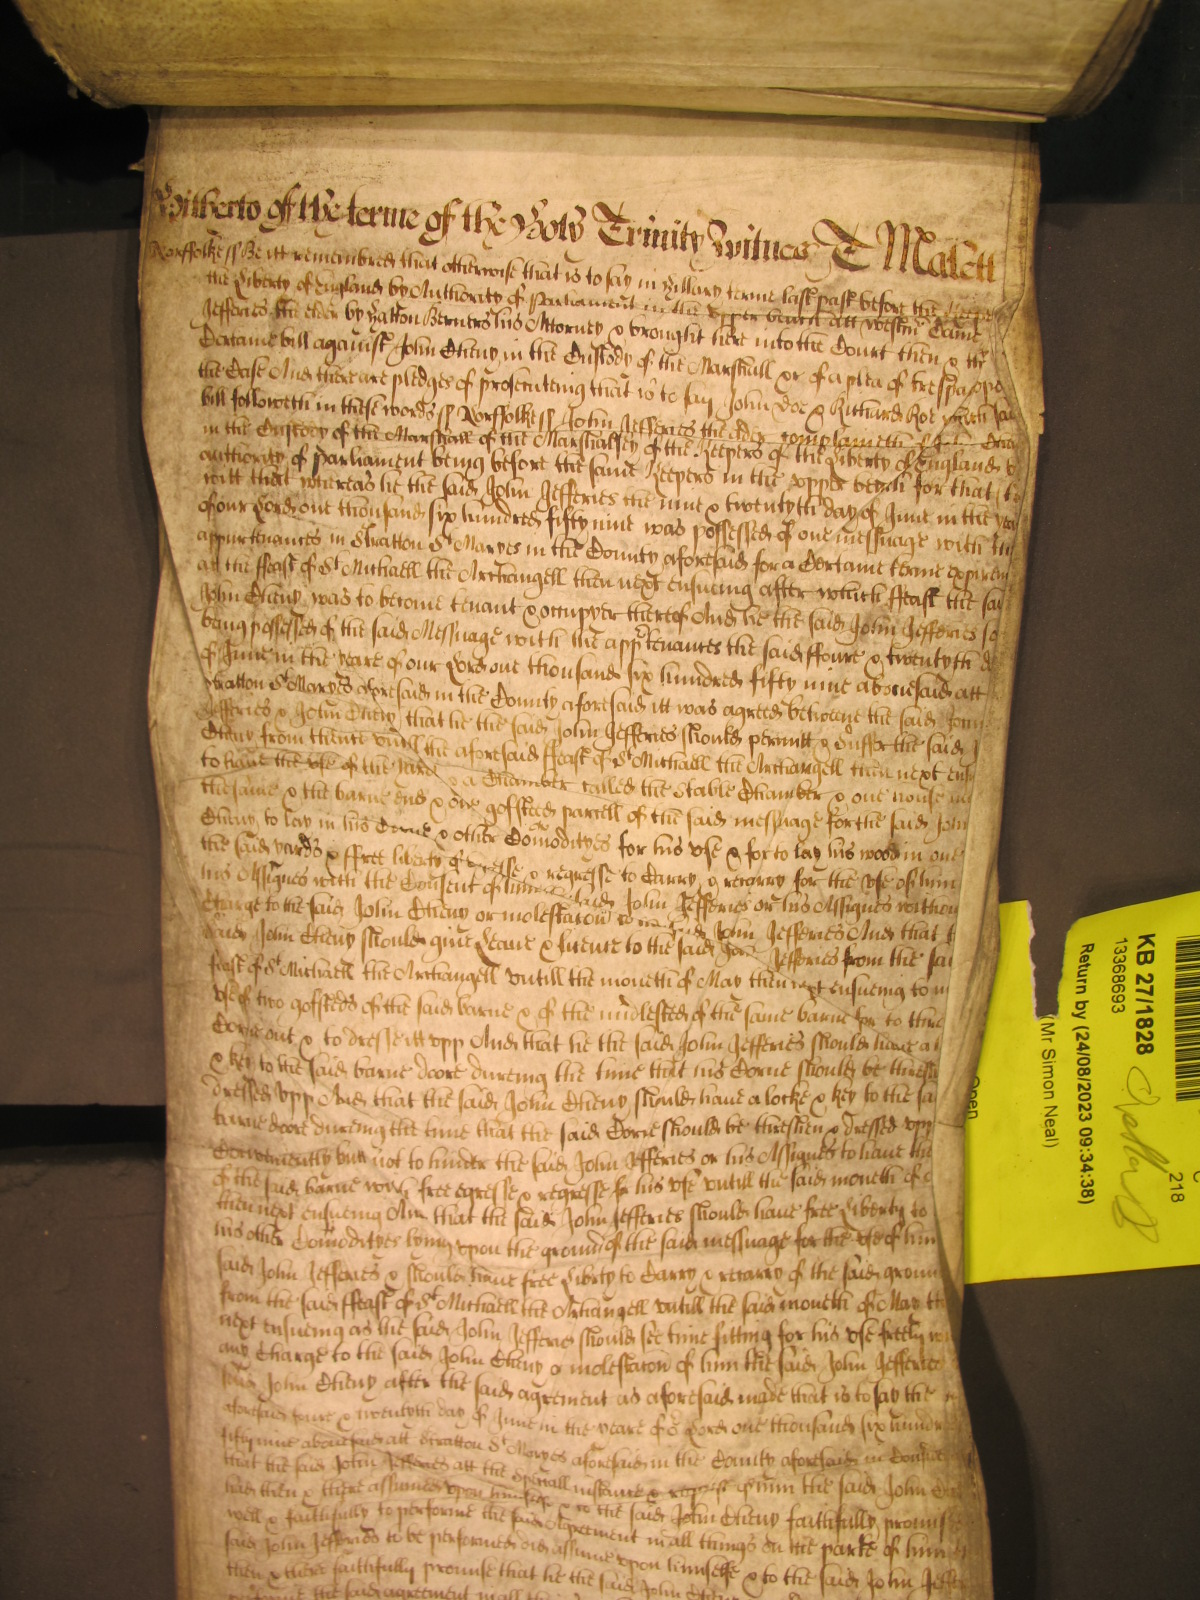 Hitherto of the terme of the Holy Trinity Witnes T Malett
Norffolke ss Be itt remembred that otherwise that is to say in Hillary terme last past before the
the Liberty of England by Authority of Parliament in the upper bench att Westm Came
Jefferies the elder by Hatton Berners his Attorney & brought here into the Court then &
Certaine bill against John Cheny in the Custody of the Marshall &c of a plea of trespas
the Case And there are pledges of prosecuteing that is to say John Doe & Richard Roe which said
bill followeth in these words ss Norffolke ss John Jefferies the elder complaineth
in the Custody of the Marshall of the Marshalsey of the Keepers of the Liberty of England
authority of Parliament being before the same Keepers in the upper bench for that
witt that whereas he the said John Jefferies the nine & twentyth day of June in the
of our Lord one thousand six hundred fifty nine was possessed of one messuage with
appurtenances in Stratton St Maryes in the County aforesaid for a Certaine terme
att the ffeast of St Michaell the Archangell then next ensueing after which ffeast the said
John Cheny was to become tenant & occupyer thereof And he the said John Jefferies so
being possessed of the said Messuage with the appurtenances the said ffoure & twentyth
of June in the yeare of our Lord one thousand six hundred fifty nine abovesaid att
Stratton St Maryes aforesaid in the County aforesaid itt was agreed betweene the said John
Jefferies & John Cheny that he the said John Jefferies should permitt & suffer the said J
Cheny from thence untill the aforesaid ffeast of St Michaell the Archangell then next
to have the use of the yard & a Chamber called the Stable Chamber & one house
the same & the barne end & one gofsteed parcell of the said messuage for the said John
Cheny to lay in his Corne & other Comodityes for his use & for to lay his wood in one
the said yards & ffree liberty of egresse & regresse to Carry & recarry for the use of him
his Assignes with the Consent of said John Jefferies or his Assignes without
Charge to the said John Cheny or molestacon to said John Jefferies And that
said John Cheny should give Leave & licence to the said John Jefferies from the said
feast of St Michaell the Archangell untill the moneth of May then next ensueing to
use of two gofsteds of the said barne & of the midlested of the same barne for to
Corne out & to dresse itt upp And that he the said John Jefferies should have a
& key to the said barne doore dureing the time that his Corne should be
dressed upp And that the said John Cheny should have a locke & key to the said
barne doore dureing the time that the said Corne should be threshen & dressed upp
Conveniently but not to hinder the said John Jefferies or his Assignes to have the
of the said barne with free egresse & regresse for his use untill the said moneth of
then next ensueing And that the said John Jefferies should have free Liberty to
his other Comodityes lying upon the ground of the said messuage for the use of him
said John Jefferies & should have free Liberty to Carry & recarry of the said ground
from the said ffeast of St Michaell the Archangell untill the said moneth of May
next ensueing as the said John Jefferies should see time fitting for his use freely
any Charge to the said John Cheny or molestacon of him the said John Jefferies
said John Cheny after the said agreement as aforesaid made that is to say the
aforesaid foure & twentyth day of June in the yeare of our Lord one thousand six
fifty nine abovesaid att Stratton St Maryes aforesaid in the County aforesaid in
that the said John Jefferies att the speciall instance & request of him the said John
had then & there assumed upon himselfe & to the said John Cheny faithfully
well & faithfully to performe the said Agreement in all things on the parte of him
said John Jefferies to be performed did assume upon himselfe & to the said John
then & there faithfully promise that he the said John Cheny
the said agreement in all
KB 27/1828
13368693
Return by (24/08/2023 09:34:38)
(Mr Simon Neal)
Open
218